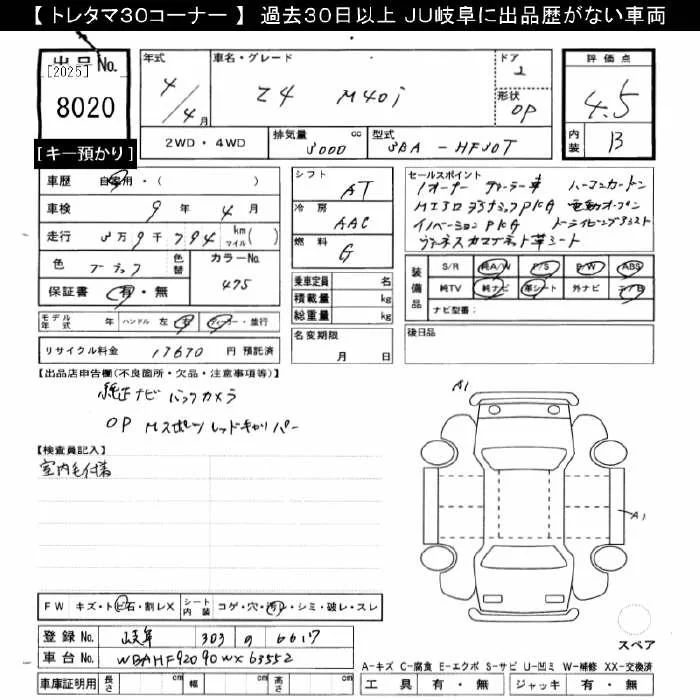 【 トレタマ30コーナー 】 過去30日以上 JU岐阜に出品歴がない車両
出品No.
[2025]
8020
[キー預かり]
年式
4/4月
車名・グレード
Z4 M40i
ドア
2
形状
OP
評価点
4.5
内装
B
2WD・4WD
排気量
3000
cc
型式
3BA - HF30T
車歴 自家用・( )
車検 9年 4月
走行 3万9千794 km マイル( )
色 ブラック
色替
カラーNo.
475
保証書 有・無
モデル年式 年 ハンドル 左 右 ディーラー・並行
リサイクル料金 17670 円 預託済
シフト AT
冷房 AAC
燃料 G
乗車定員 名
積載量 kg
総重量 kg
名変期限
月 日
セールスポイント
1オーナー ディーラー車 ハーマンカードン
電動オープン
イノベーションPKG
装備品
S/R 純A/W P/S P/W ABS
純TV 純ナビ 革シート 外ナビ エアB
ナビ型番:
後日品
【出品店申告欄(不良箇所・欠品・注意事項等)】
純正ナビ バックカメラ
OP Mスポーツ レッドキャリパー
【検査員記入】
室内毛付着
A1
A1
FW キズ・トビ石・割レX
シート内装 コゲ・穴・汚レ・シミ・破レ・スレ
登録No. 岐阜 303 の 6617
車台No. WBAHF92090WX63552
車庫証明用 長さ cm 幅 cm 高さ cm
スペア
A-キズ C-腐食 E-エクボ S-サビ U-凹ミ W-補修 XX-交換済
工具 有・無 ジャッキ 有・無